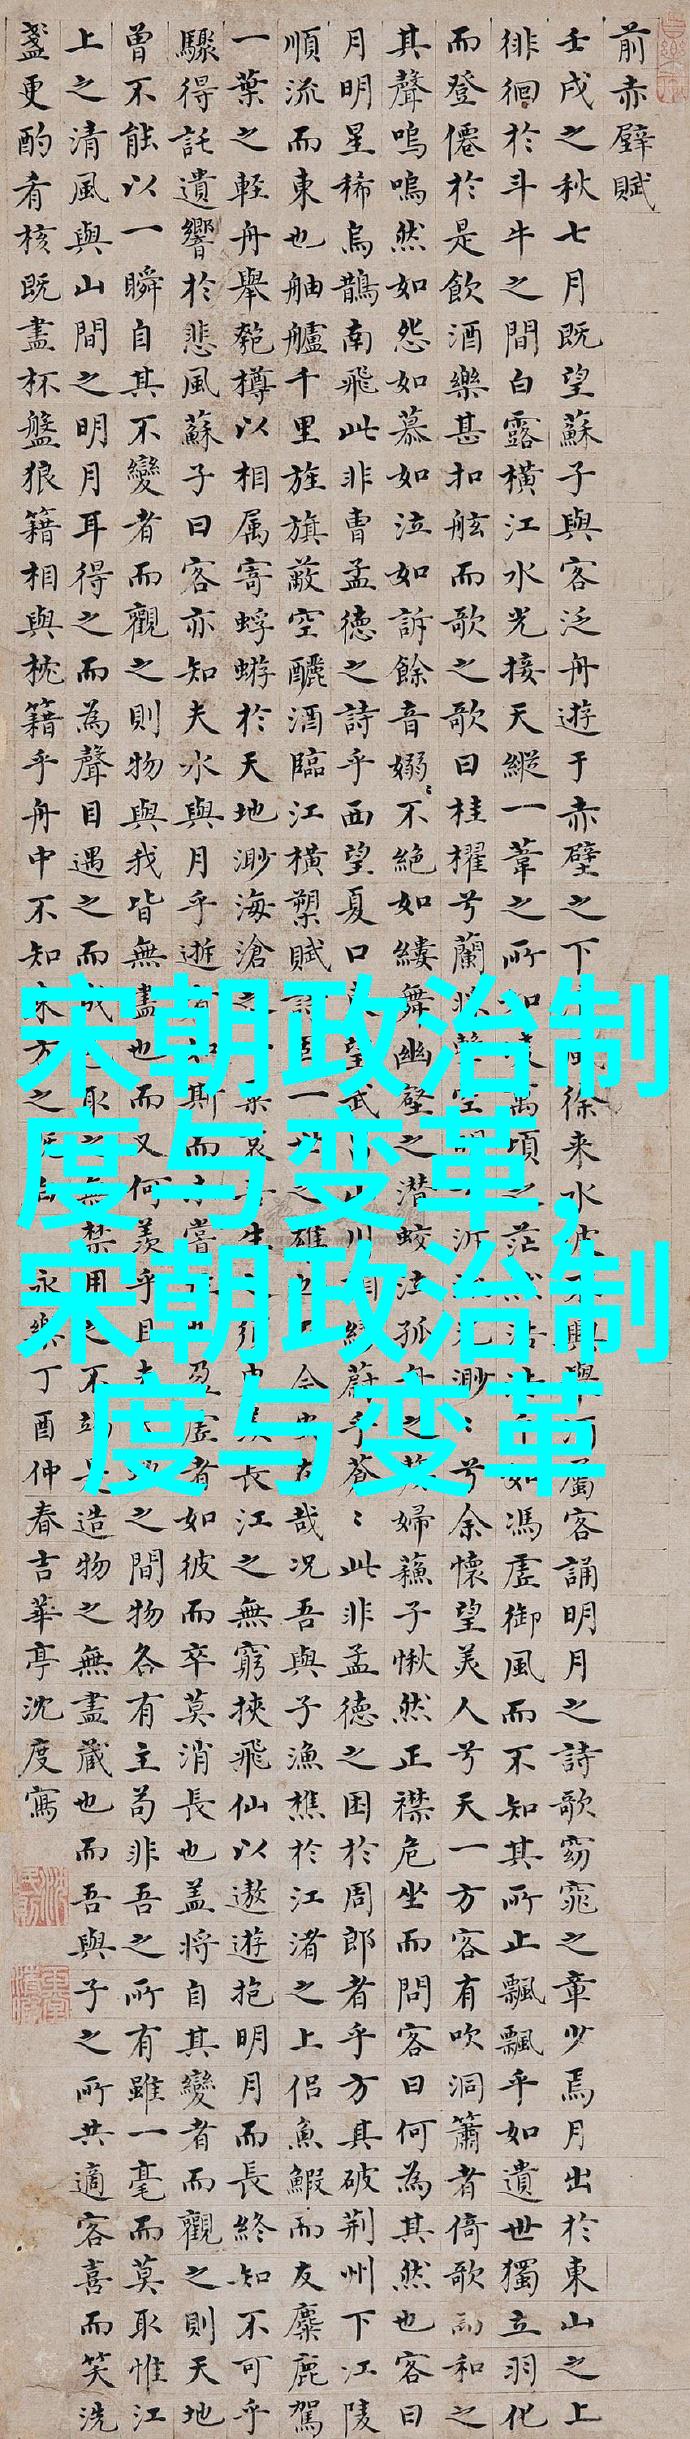 前赤壁賦
壬戌之秋七月既望蘇子與客泛舟遊于赤壁之下徐来水波興與客誦明月之詩歌窈窕之章少焉月出於東山之上
徘徊於斗牛之間白露橫江水光接天縱一葦之所如萬頃之茫然如馮虛御風而不知其所止飄飄乎如遺世獨立羽化
而登僊於是飲酒樂甚扣舷而歌之歌曰桂櫂兮蘭空泝光渺〻兮余懷望美人兮天一方客有吹洞簫者倚歌而和之
其聲嗚嗚然如怨如慕如泣如訴餘音嫋〻不絶如縷舞幽壑之潜蛟泣孤舟之婦蘇子愀然正襟危坐而問客曰何為其然也客曰
月明星稀烏鵲南飛此非曹孟德之詩乎西望夏口望武川相繆蔚乎蒼〻此非孟德之困於周郎者乎方其破荆州下江陵
順流而東也舳艫千里旌旗蔽空釃酒臨江橫槊賦一之雄今哉况吾與子漁樵於江渚之上侶魚鰕而友麋鹿駕
一葉之輕舟舉匏樽以相属寄蜉蝣於天地渺海滄之哀生長江之無窮挾飛仙以遨遊抱明月而長終知不可乎
驟得託遺響於悲風蘇子曰客亦知夫水與月乎逝斯而嘗盈虛者如彼而卒莫消長也盖將自其變者而觀之則天地
曾不能以一瞬自其不變者而觀之則物與我皆無盡也而又何羨乎且之間物各有主苟非吾之所有雖一毫而莫取惟江
上之清風與山間之明月耳得之而為聲目遇之而成取無禁用之不是造物之無盡藏也而吾與子之所共適客喜而笑洗
盞更酌肴核既盡杯盤狼籍相與枕籍乎舟中不知東方之永樂丁酉仲春吉華亭沈度寫
宋朝政治制
度与变革,
宋朝政治制
度与变革